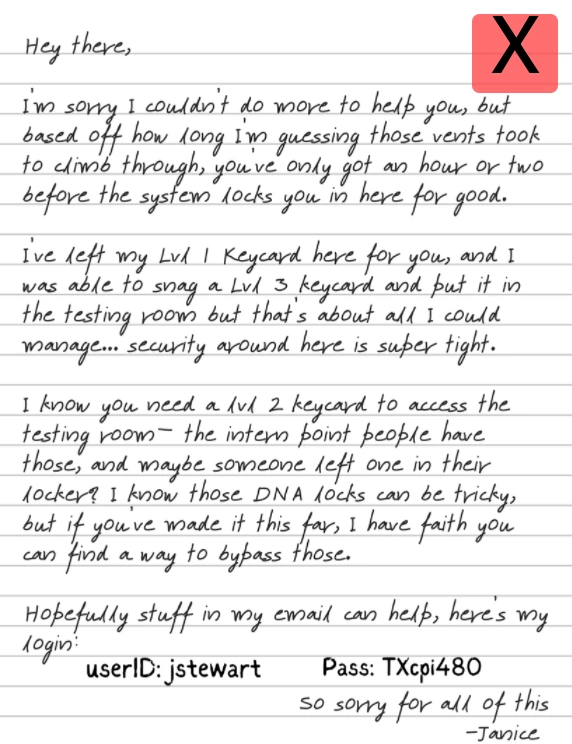 X
Hey there,
I'm sorry I couldn't do more to help you, but
based off how long I'm guessing those vents took
to climb through, you've only got an hour or two
before the system locks you in here for good.
I've left my Lvl 1 Keycard here for you, and I
was able to snag a Lvl 3 keycard and put it in
the testing room but that's about all I could
manage... security around here is super tight.
I know you need a lvl 2 keycard to access the
testing room– the intern point people have
those, and maybe someone left one in their
locker? I know those DNA locks can be tricky,
but if you've made it this far, I have faith you
can find a way to bypass those.
Hopefully stuff in my email can help, here's my
login:
userID: jstewart Pass: TXcpi480
so sorry for all of this
-Janice